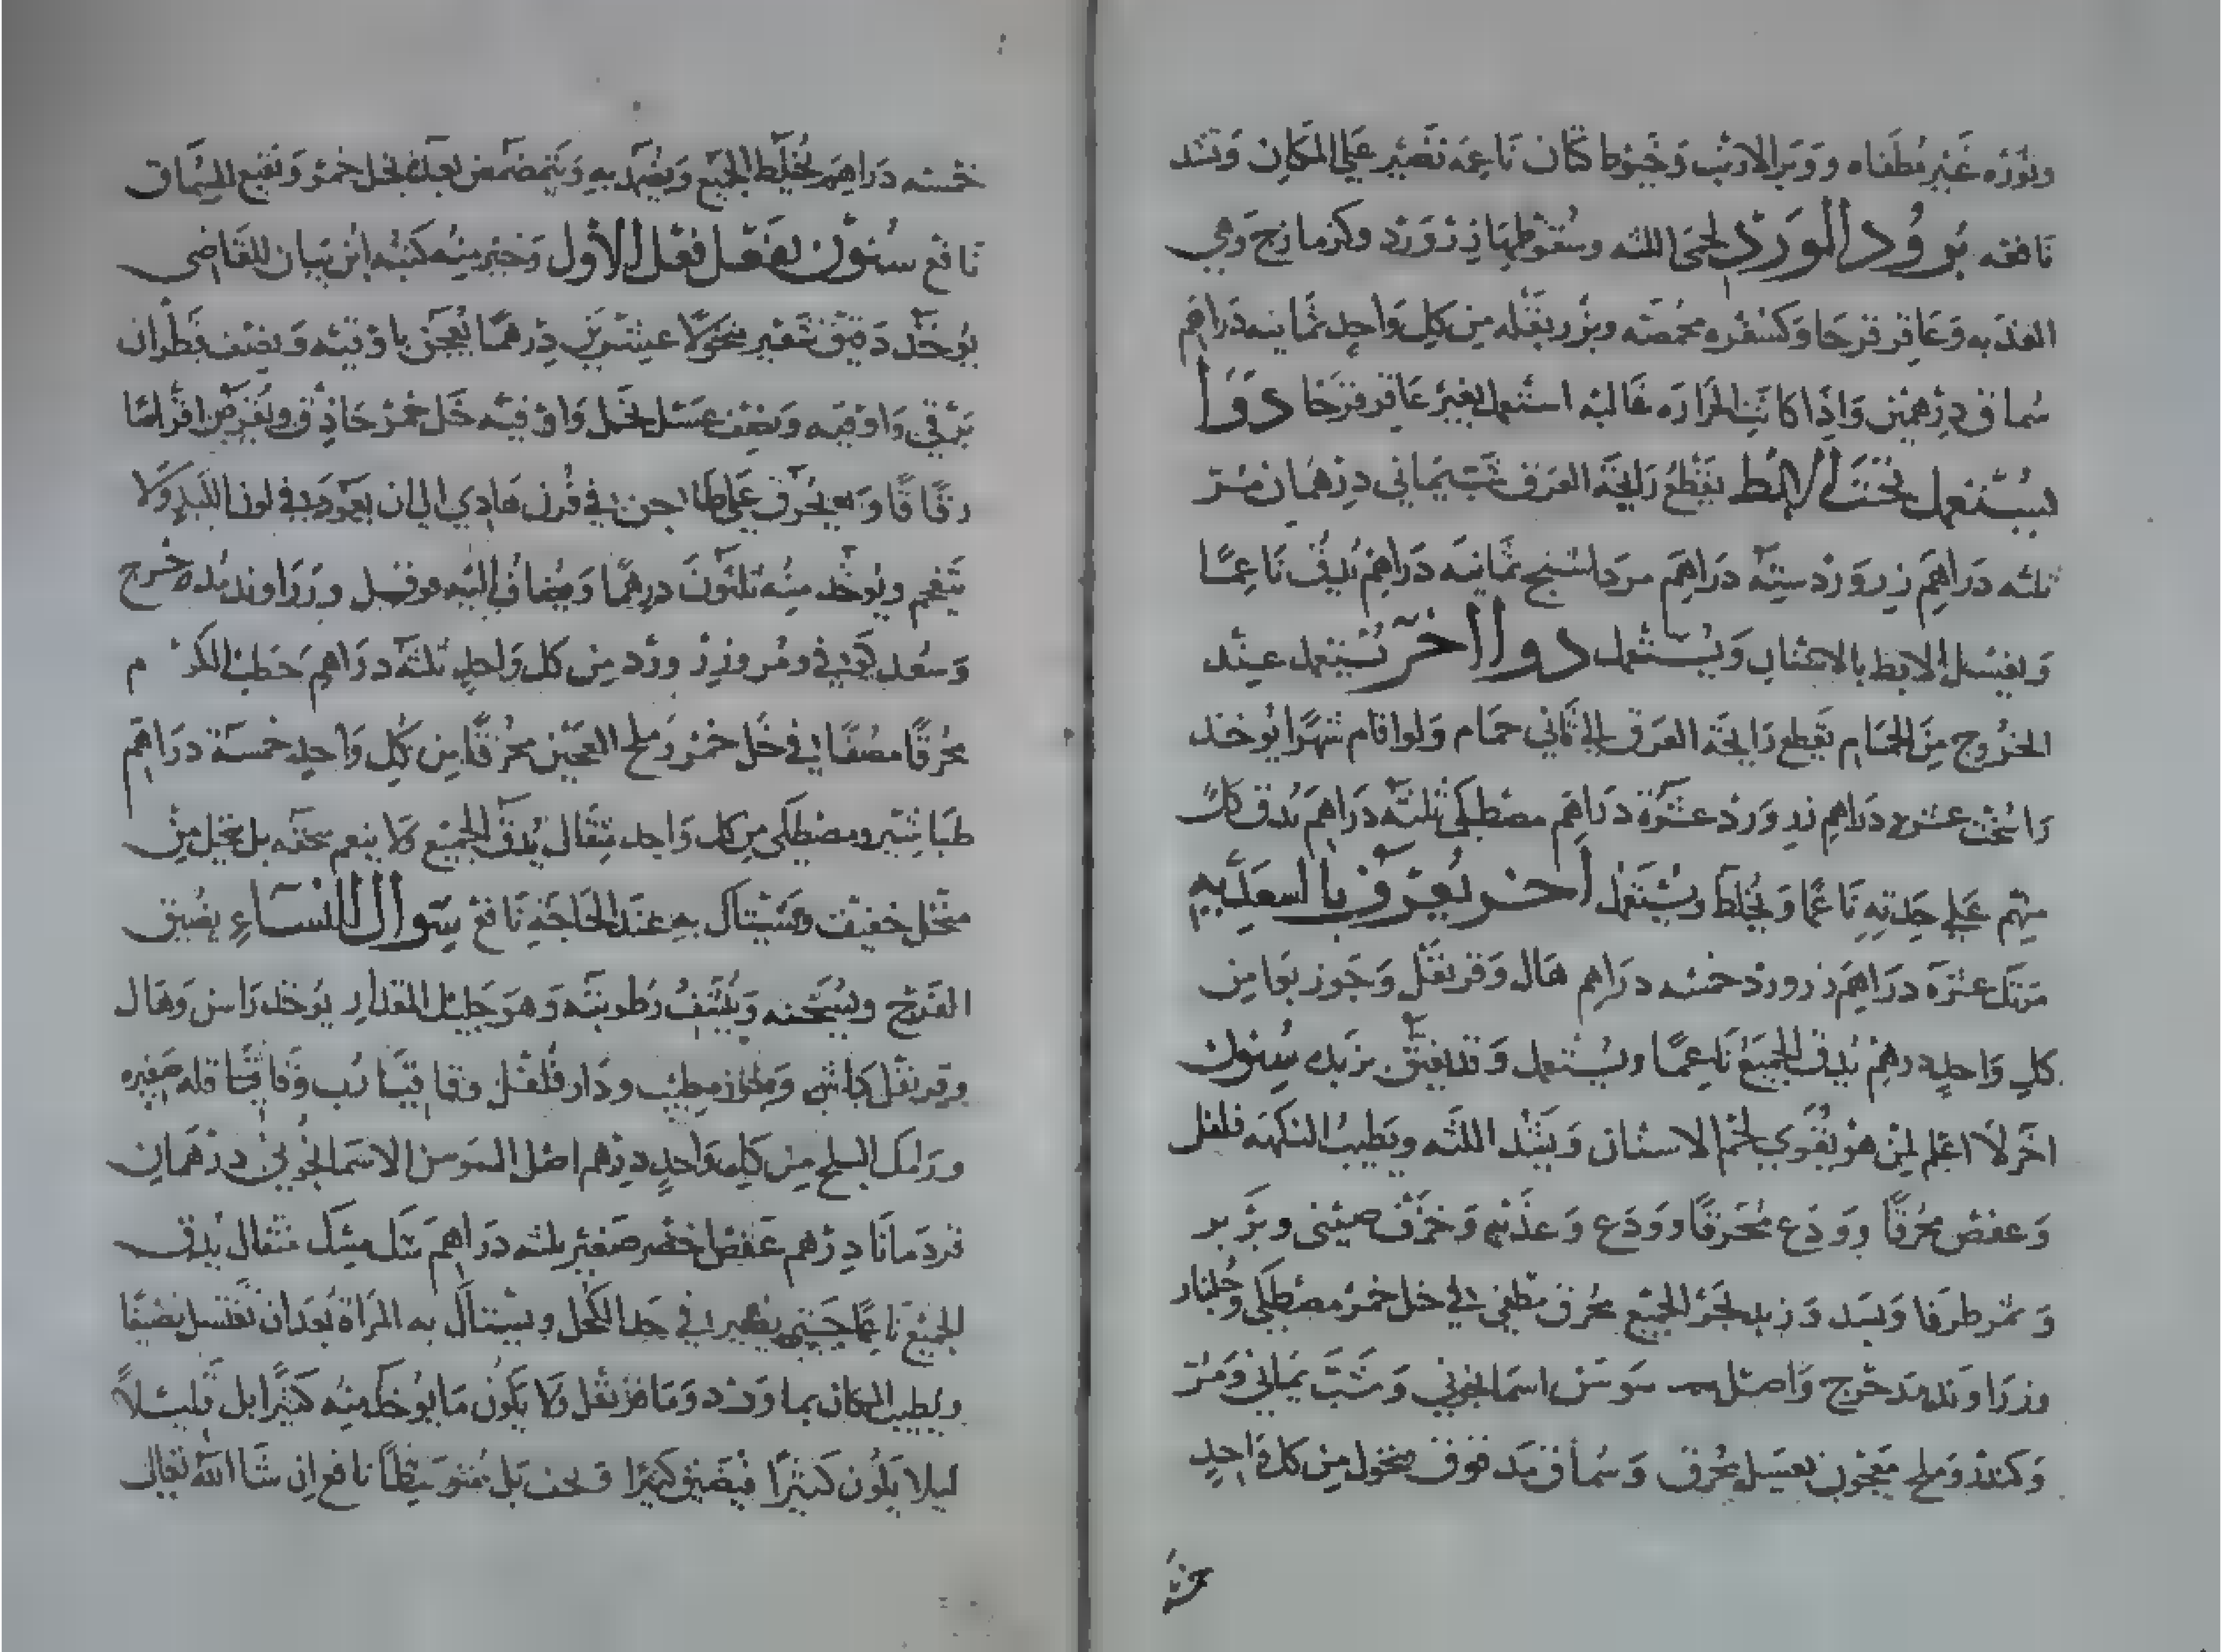 ونوره غير مطفاه ووبر الارنب وخيوط كتان ناعمه تصير علي المكان وتشد
نافعه برود الورد لحمي اللثه وسقوطها زرورد وكزمازج وهي
العذبه وعاقرقرحا وكسفره محمصه وبزر بقله من كل واحد ثمانيه دراهم
سماق درهمين واذا كانت الحراره غالبه استعمل بغير عاقرقرحا دوا
يستعمل تحت الابط يقطع رايحة العرق شب يماني درهمان مر
ثلثه دراهم زرورد ستة دراهم مرداسنج ثمانية دراهم يدق ناعما
ويغسل الابط بالاشنان ويستعمل دوا اخر يستعمل عند
الخروج من الحمام يقطع رايحة العرق الي ثاني حمام ولو اقام شهرا يوخذ
راسخت عشره دراهم زرورد عشرة دراهم مصطكي ثلثة دراهم يدق كل
منهم علي حدته ناعما ويخلط ويستعمل اخر يعرف بالسعديه
مرتك عشرة دراهم زرورد خمسه دراهم هال وقرنفل وجوز بوا من
كل واحد درهم يدق الجميع ناعما ويستعمل وقد يعتق بزبده سنون
اخر لا اعلم لمن هو يقوي لحم الاسنان ويشد اللثه ويطيب النكهه فلفل
وعفص محرقا وودع محرقا وودع وعذبه وخزف صيني وبزر
وثمر طرفا وبسد وزبد البحر الجميع محرق مطفي في خل خمر مصطكي وجلنار
وزراوند مدحرج واصل سوسن اسمانجوني وشب يماني ومر
وكندر وملح معجون بعسل محرق وسماق مدقوق منخول من كل واحد
خمسه دراهم يخلط الجميع ويضمد به ويتمضمض بعده بخل خمر ونقيع السماق
نافع سنون يفعل فعل الاول وخير منه كتبه ابن بيان للقاضي
يوخذ دقيق شعير منخولا عشرين درهما يعجن باوقيه ونصف قطران
برقي واوقيه ونصف عسل نحل واوقيه خل خمر حاذق ويقرص اقراصا
رقاقا ويحرق علي طاجن في فرن هادي الي ان يعود في لون اللبد ولا
يتفحم ويوخذ منه ثلثون درهما ويضاف اليه فوفل وزراوند مدحرج
وسعد كوفي ومر وزرورد من كل واحد ثلثة دراهم حطب الكرم
محرقا مصفا في خل خمر وملح العجين محرقا من كل واحد خمسة دراهم
طباشير ومصطكي من كل واحد مثقال يدق الجميع ولا ينعم سحقه بل ينخل من
منخل خفيف ويستاك به عند الحاجة نافع سواك للنساء يضيق
الفرج ويسخنه وينشف رطوبته وهو جليل المقدار يوخذ راسن وهال
وقرنفل وملوز مطيب ودار فلفل وقاقيا رب وقاقيا قله صغيره
ورامك البلح من كل واحد درهم اصل السوسن الاسمانجوني درهمان
قردمانا درهم عفص اخضر صغير ثلثه دراهم سك مسك مثقال يدق
الجميع ناعما حتي يصير في حد الكحل ويستاك به المراة بعد ان تغتسل نضيفا
ويطيب المكان بما ورد وما قرنفل ولا يكون ما يوخذ منه كثيرا بل قليلا
ليلا يكون كثيرا فيضيق كثيرا بل متوسطا نافع ان شا الله تعالي